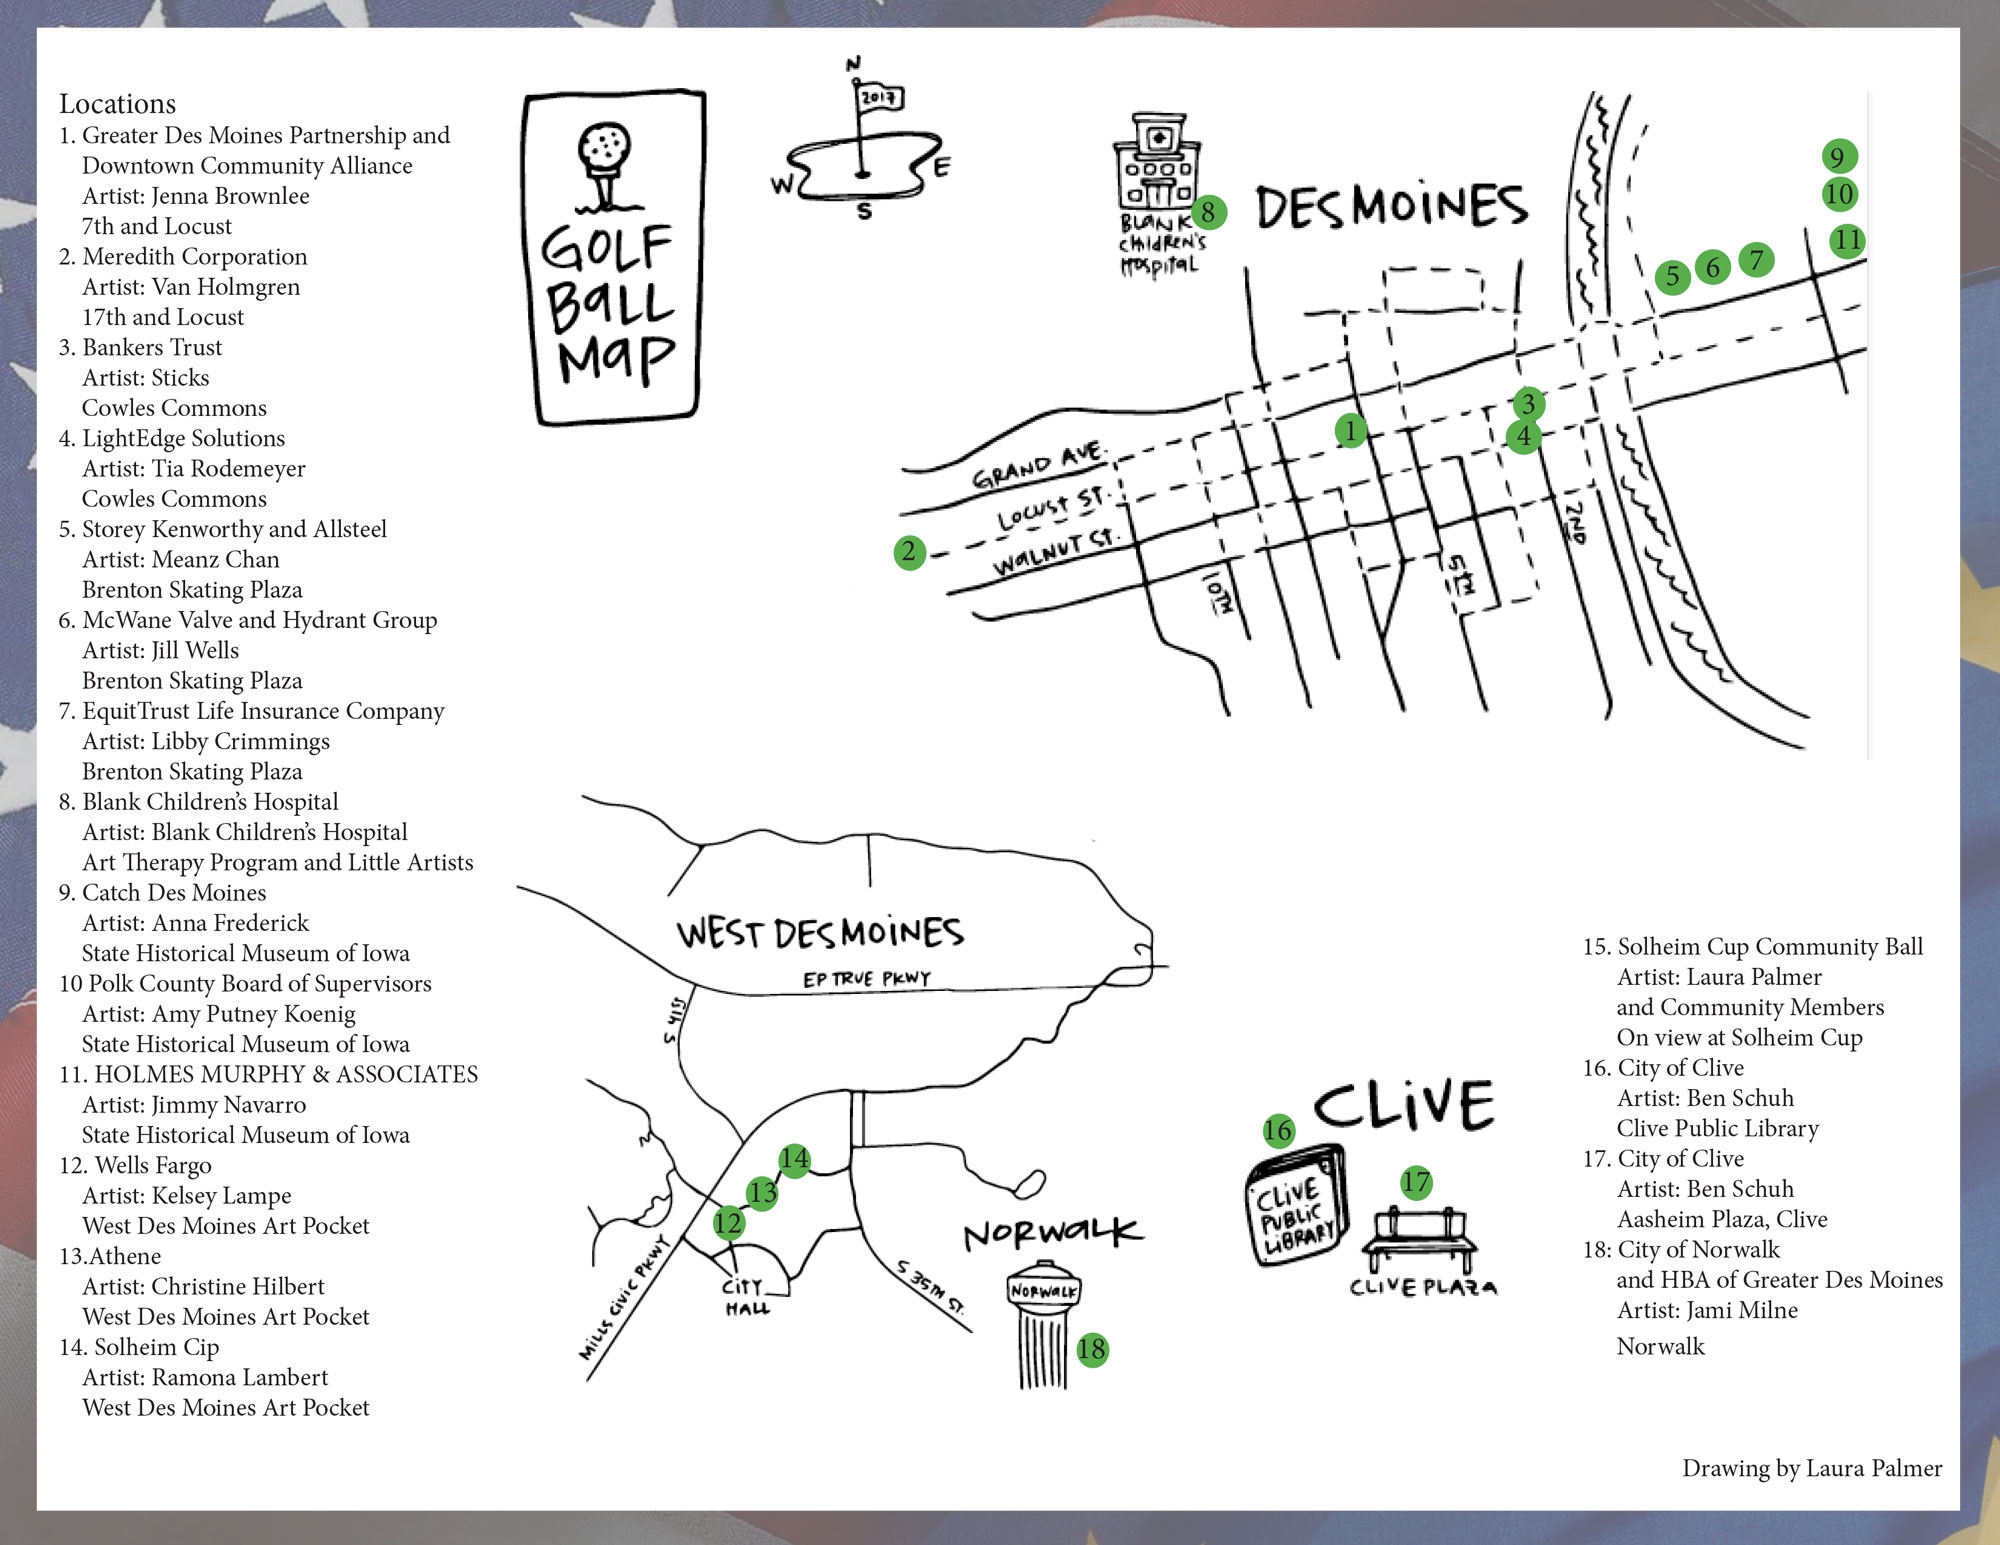 Locations
1. Greater Des Moines Partnership and
Downtown Community Alliance
Artist: Jenna Brownlee
7th and Locust
2. Meredith Corporation
Artist: Van Holmgren
17th and Locust
3. Bankers Trust
Artist: Sticks
Cowles Commons
4. LightEdge Solutions
Artist: Tia Rodemeyer
Cowles Commons
5. Storey Kenworthy and Allsteel
Artist: Meanz Chan
Brenton Skating Plaza
6. McWane Valve and Hydrant Group
Artist: Jill Wells
Brenton Skating Plaza
7. EquitTrust Life Insurance Company
Artist: Libby Crimmings
Brenton Skating Plaza
8. Blank Children's Hospital
Artist: Blank Children's Hospital
Art Therapy Program and Little Artists
9. Catch Des Moines
Artist: Anna Frederick
State Historical Museum of Iowa
10 Polk County Board of Supervisors
Artist: Amy Putney Koenig
State Historical Museum of Iowa
11. HOLMES MURPHY & ASSOCIATES
Artist: Jimmy Navarro
State Historical Museum of Iowa
12. Wells Fargo
Artist: Kelsey Lampe
West Des Moines Art Pocket
13.Athene
Artist: Christine Hilbert
West Des Moines Art Pocket
14. Solheim Cip
Artist: Ramona Lambert
West Des Moines Art Pocket
GOLF
BALL
MAP
N
2017
W
E
S
BLANK
CHILDREN'S
HOSPITAL
8
DESMOINES
9
10
11
5
6
7
3
1
4
GRAND AVE.
LOCUST ST.
2
WALNUT ST.
10TH
5TH
2ND
WEST DESMOINES
EP TRUE PKWY
S 41ST
14
13
12
MILLS CIVIC PKWY
CITY
HALL
S 35TH ST.
NORWALK
NORWALK
18
CLIVE
16
CLIVE
PUBLIC
LIBRARY
17
CLIVE PLAZA
15. Solheim Cup Community Ball
Artist: Laura Palmer
and Community Members
On view at Solheim Cup
16. City of Clive
Artist: Ben Schuh
Clive Public Library
17. City of Clive
Artist: Ben Schuh
Aasheim Plaza, Clive
18: City of Norwalk
and HBA of Greater Des Moines
Artist: Jami Milne
Norwalk
Drawing by Laura Palmer